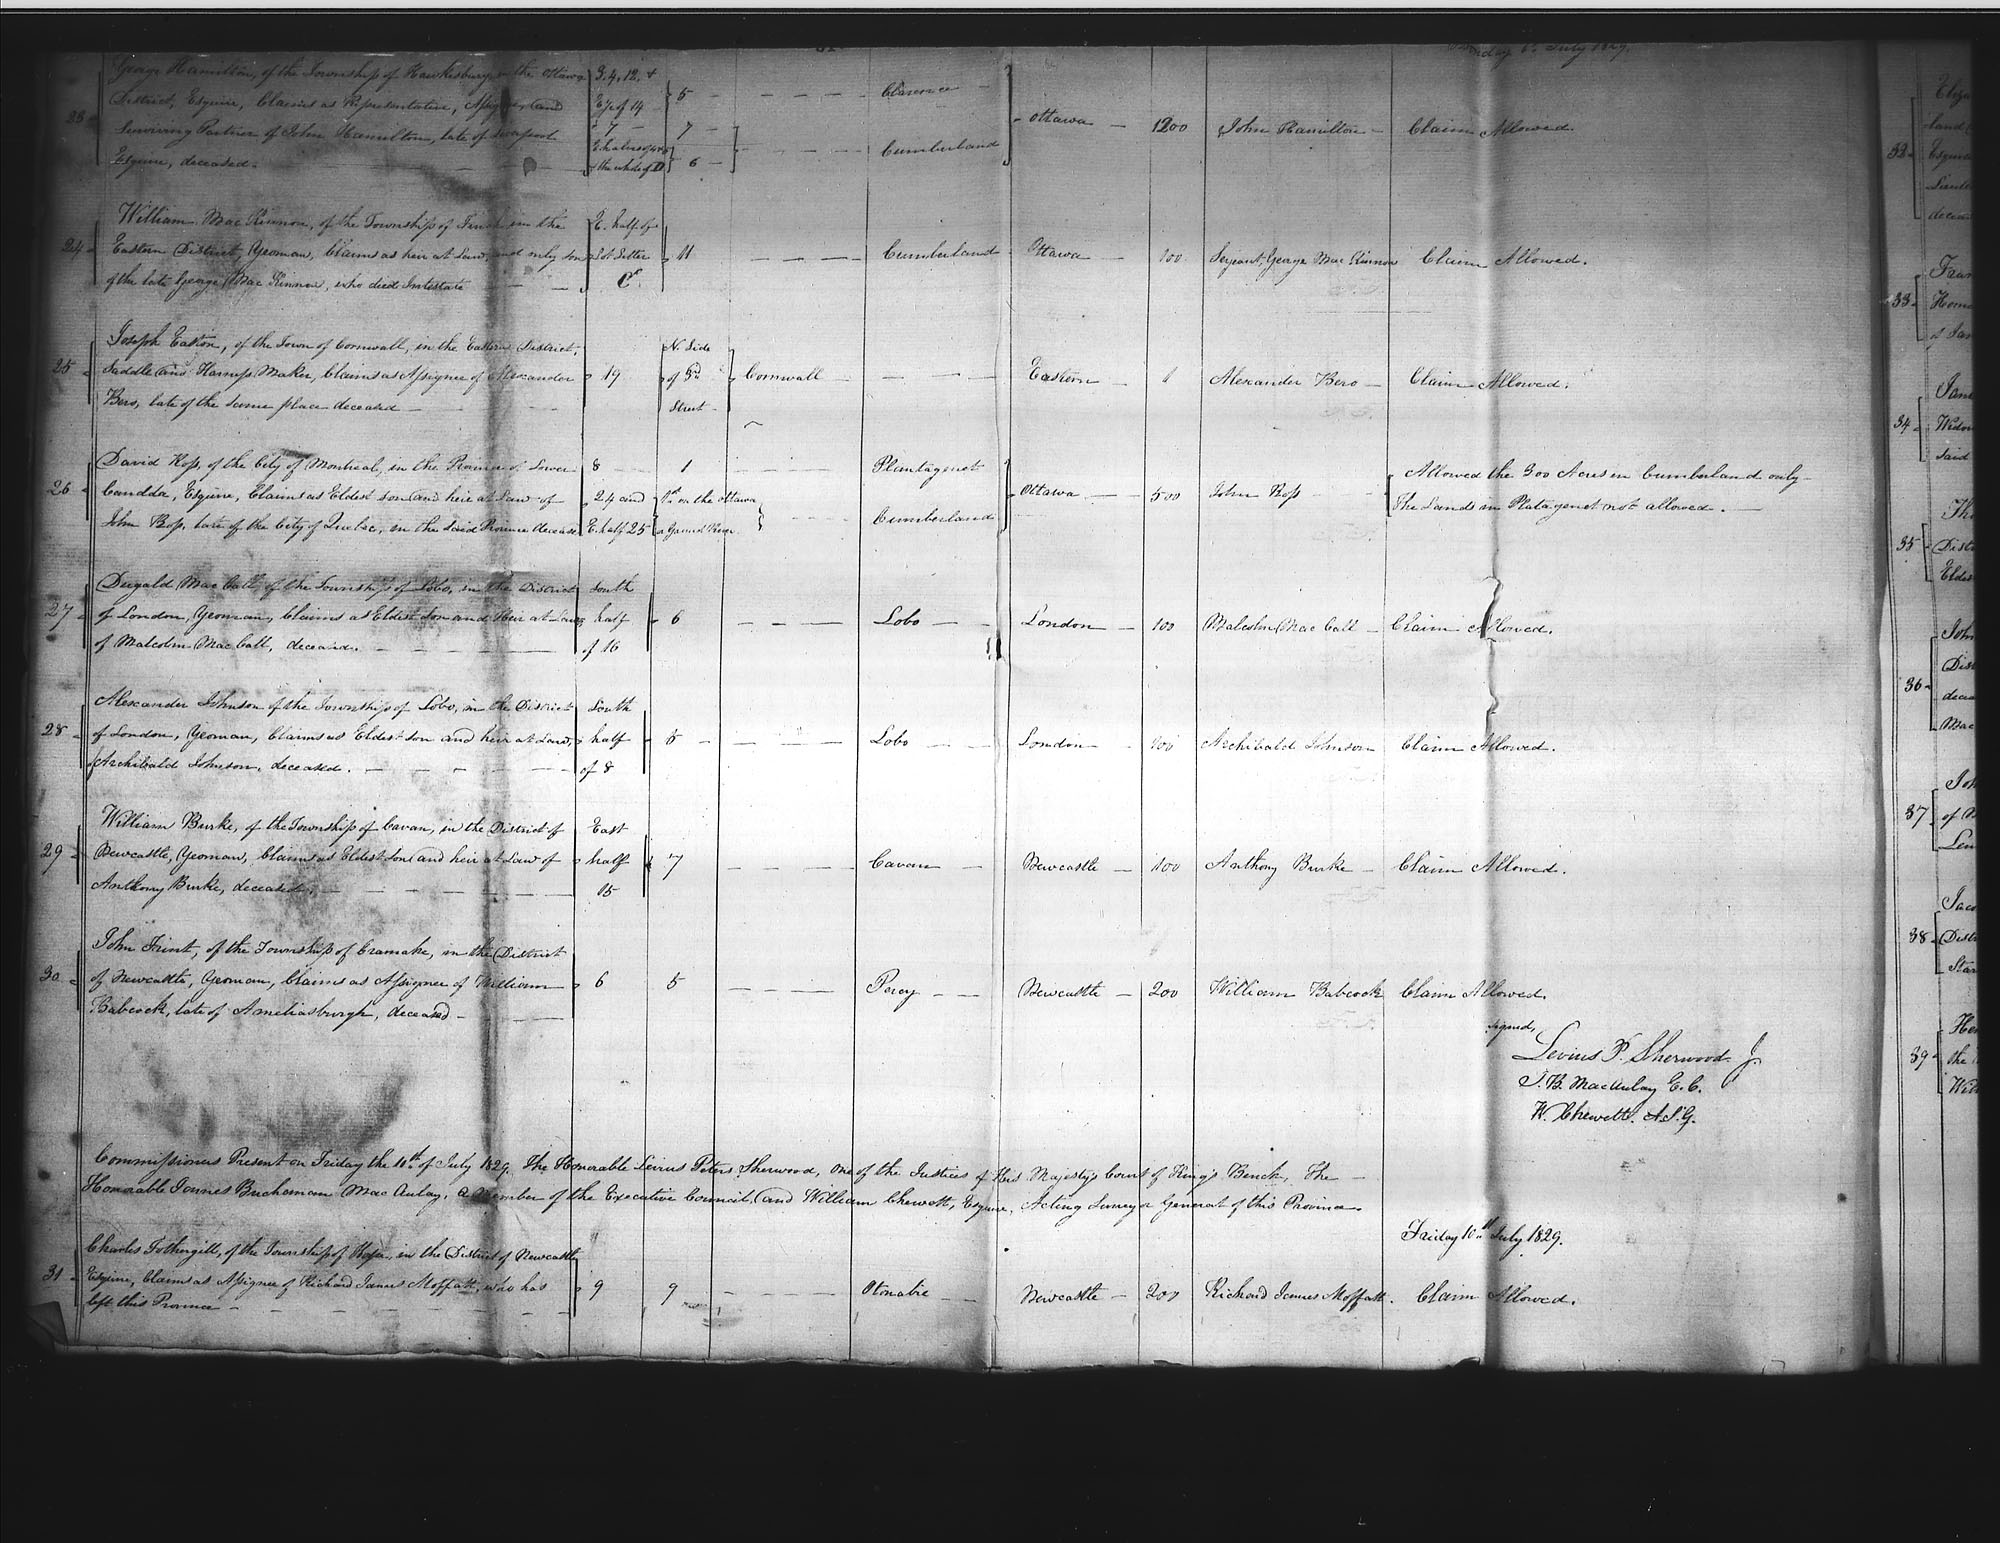 July 1829.
George Hamilton, of the Township of Hawkesbury in the Ottawa
District, Esquire, Claims as Representative, Assignee, and
Surviving Partner of John Hamilton, late of Liverpool
Esquire, deceased.
23
3. 4. 12. +
E½ of 14
7
5
7
6
Clarence
Cumberland
Ottawa
1200
John Hamilton
Claim Allowed.
24
William Mac Kinnon, of the Township of Finch in the
Eastern District, Yeoman, Claims as heir at Law, and only son
of the late George Mac Kinnon, who died Intestate
E. half of
Lot Letter
C.
11
Cumberland
Ottawa
100
Serjeant George Mac Kinnon
Claim Allowed.
25
Joseph Easton, of the Town of Cornwall, in the Eastern District,
Saddle and Harness Maker, Claims as Assignee of Alexander
Bero, late of the same place deceased
19
N. Side
of 3rd
Street
Cornwall
Eastern
1
Alexander Bero
Claim Allowed.
26
David Ross, of the City of Montreal, in the Province of Lower
Candda, Esquire, Claims as Eldest son and heir at Law of
John Ross, late of the City of Quebec, in the said Province deceased
8
24 and
E. half 25
1
1st on the Ottawa
or Grand River
Plantagenet
Cumberland
Ottawa
500
John Ross
Allowed the 300 Acres in Cumberland only
The Lands in Platagenet not allowed.
27
Dugald Mac Call, of the Township of Lobo, in the District
of London, Yeoman, Claims as Eldest son and Heir at Law
of Malcolm Mac Call, deceased.
South
half
of 16
6
Lobo
London
100
Malcolm Mac Call
Claim Allowed.
28
Alexander Johnson of the Township of Lobo, in the District
of London, Yeoman, Claims as Eldest son and heir at Law,
of Archibald Johnson, deceased.
South
half
of 8
5
Lobo
London
100
Archibald Johnson
Claim Allowed.
29
William Burke, of the Township of Cavan, in the District of
Newcastle, Yeoman, Claims as Eldest son and heir at Law of
Anthony Burke, deceased.
East
half
15
7
Cavan
Newcastle
100
Anthony Burke
Claim Allowed.
30
John Trint, of the Township of Cramahe, in the District
of Newcastle, Yeoman, Claims as Assignee of William
Babcock, late of Ameliasburgh, deceased
6
5
Percy
Newcastle
200
William Babcock
Claim Allowed.
signed,
Levius P. Sherwood J.
J. B. Macaulay E. C.
W. Chewett. A.S.G.
Commissioners Present on Friday the 10th of July 1829. The Honorable Levius Peters Sherwood, one of the Justices of His Majesty's Court of King's Bench, The
Honorable James Buchanan Mac Aulay, a Member of the Executive Council, and William Chewett, Esquire, Acting Surveyor General of this Province.
Friday 10th July 1829.
31
Charles Fothergill, of the Township of Hope, in the District of Newcastle
Esquire, Claims as Assignee of Richard James Moffatt, who has
left this Province
9
9
Otonabe
Newcastle
200
Richard James Moffatt.
Claim Allowed.
32
33
34
35
36
37
38
39